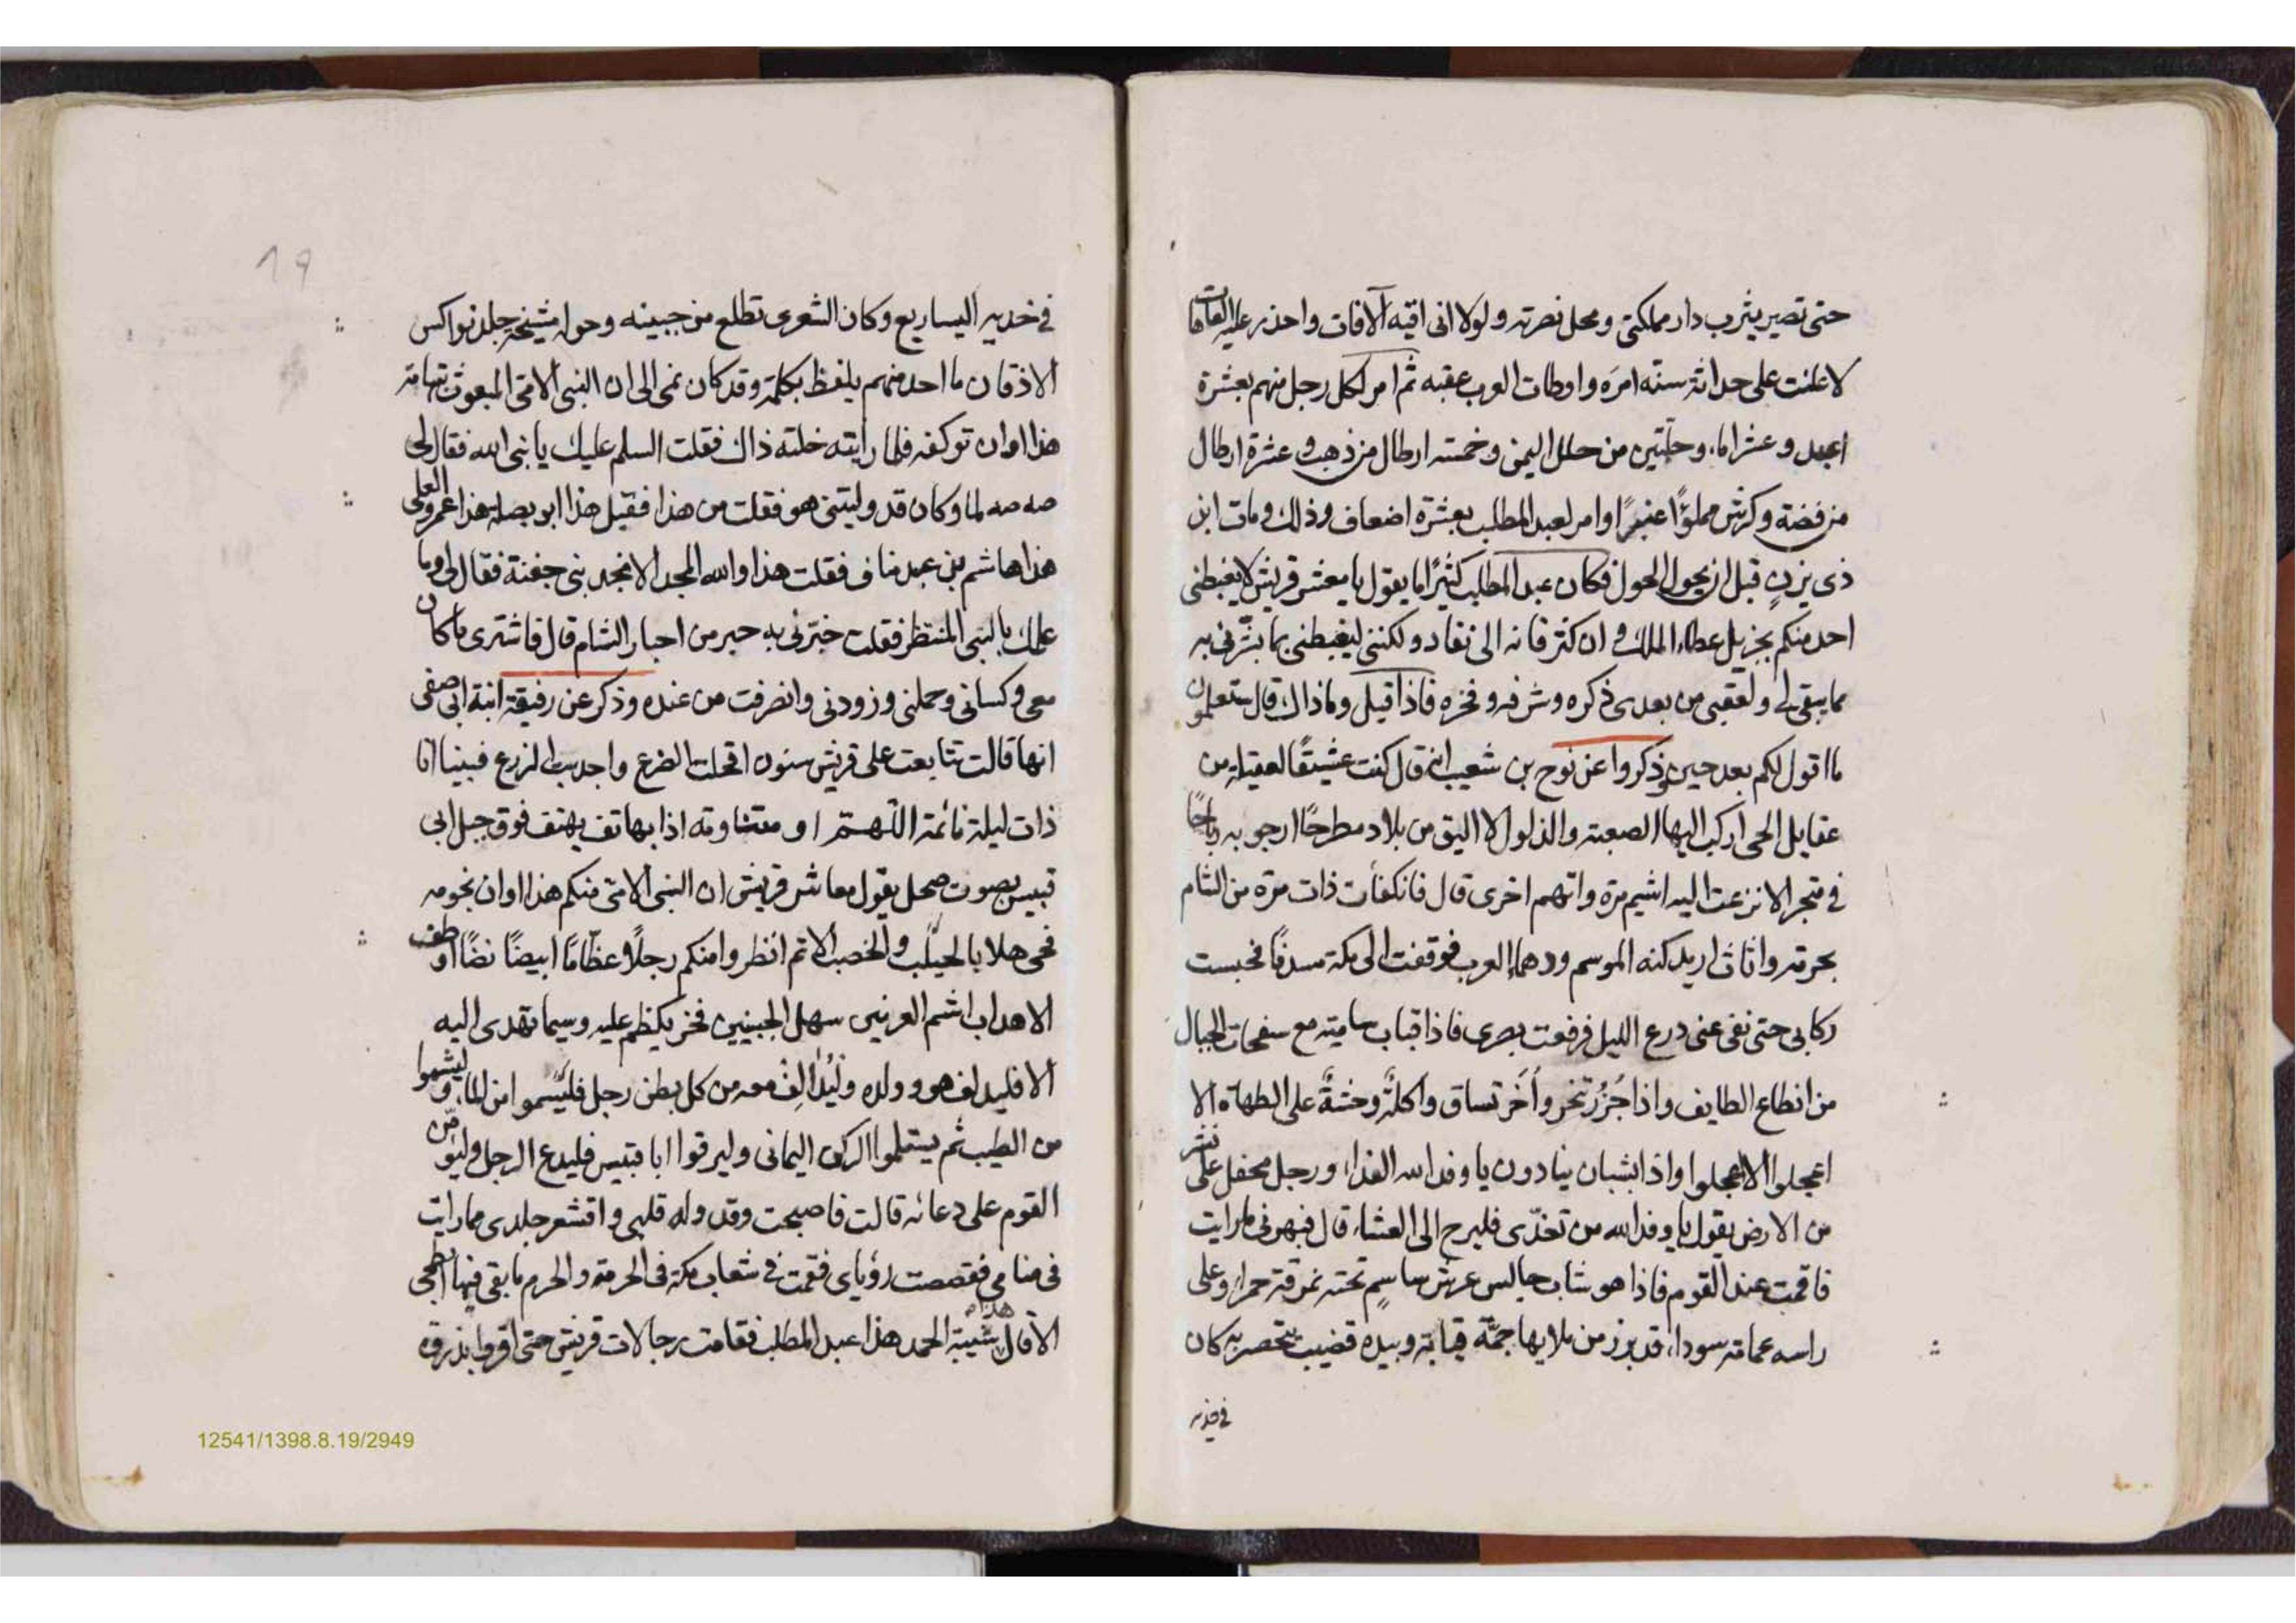 حتى تصير يثرب دار مملكتي ومحل نصرته ولولا اني اقيه الآفات واحذر عليه العاهات
لاعلنت على حداثة سنه امره واوطات العرب عقبه ثم امر لكل رجل منهم بعشرة
اعبد وعشر اماء وحلتين من حلل اليمن وخمسة ارطال من ذهب وعشرة ارطال
من فضة وكرش مملوًّا عنبرًا وامر لعبد المطلب بعشرة اضعاف ذلك ومات ابن
ذي يزن قبل ان يحول الحول فكان عبد المطلب كثيرًا ما يقول يا معشر قريش لا يغبطني
احد منكم بجزيل عطاء الملك وان كثر فانه الى نفاد ولكنني ليغبطني بما بشّرني به
مما يبقى لي ولعقبي من بعدى ذكره وشرفه وفخره فاذا قيل وما ذاك قال ستعلمون
ما اقول لكم بعد حين وذكروا عن نوح بن شعيب انه قال كنت عشيقًا لعقيلة من
عقايل الحي اركب اليها الصعبة والذلول لا اليق من بلاد مطرحًا ارجو به رباحًا
في متجر الا نزعت اليه اشيم مرة واتهم اخرى قال فانكفأت ذات مرة من الشام
بحرثه واثاث اريد كنه الموسم ودهماء العرب فوقفت الى مكة مسدفًا فحبست
ركابي حتى نفى عني درع الليل فرفعت بصرى فاذا قباب سامية مع سفحات الجبال
من انطاع الطايف واذا جُزُر تنحر واُخَر تساق واكلةٌ وحثثةٌ على الطهاة الا
اعجلوا الا اعجلوا واذا بشبان ينادون يا وفد الله الغداء ورجل محفل على نشر
من الارض يقول يا وفد الله من تغدّى فليرح الى العشاء قال فبهرني ما رايت
فاقمت عند القوم فاذا هو شاب جالس عرش ساسم تحته نمرقة حمراء وعلى
راسه عمامة سوداء قد برز من ملايها جمّة فينانة وبيده قضيب يتخصر به كان
في خديه
19
في خديه اليساريع وكان الشعرى تطلع من جبينه وحوله مشيخة جلة نواكس
الاذقان ما احد منهم يلفظ بكلمة وقد كان نمى الى ان النبي الامي المبعوث بتهامة
هذا اوان توكفه فلما رايته خلته ذاك فقلت السلم عليك يا نبي الله فقال لي
صه صه لما وكان قد وليتني هو فقلت من هذا فقيل هذا ابو بصله هذا عمرو العلى
هذا هاشم بن عبد مناف فقلت هذا والله المجد الا مجد بني جفنة فقال لي وما
علمك بالنبي المنتظر فقلت خبّرني به حبر من احبار الشام قال فاشترى ما كان
معي وكساني وحملني وزودني وانصرفت من عنده وذكر عن رفيقة ابنة ابي صفى
انها قالت تتابعت على قريش سنون اقحلت الضرع واجدبت الزرع فبينا انا
ذات ليلة نائمة اللّهم او متناومة اذا بهاتف يهتف فوق جبل ابي
قبيس بصوت صحل يقول معاشر قريش ان النبي الامي منكم هذا اوان نجومه
فحي هلا بالحياء والخصب الا ثم انظروا منكم رجلًا عظامًا ابيضًا نضًا اوطف
الاهداب اشم العرنين سهل الجبينين فخر يكظم عليه وسيما تهدى اليه
الا فليدلف هو وولده وليُدْلِفْ معه من كل بطن رجل فليسموا من الماء وليشموا
من الطيب ثم يستلموا الركن اليماني وليرقوا ابا قبيس فليدع الرجل وليؤمّن
القوم على دعائه قالت فاصبحت وقد وله قلبي واقشعر جلدى مما رايت
في منامي فقصصت رؤياى فقمت في شعاب مكة في الحرمة والحرم ما بقي فيها ابطحي
الا قال هذا شيبة الحمد هذا عبد المطلب فقامت رجالات قريش حتى اقروا بذروة
12541/1398.8.19/2949